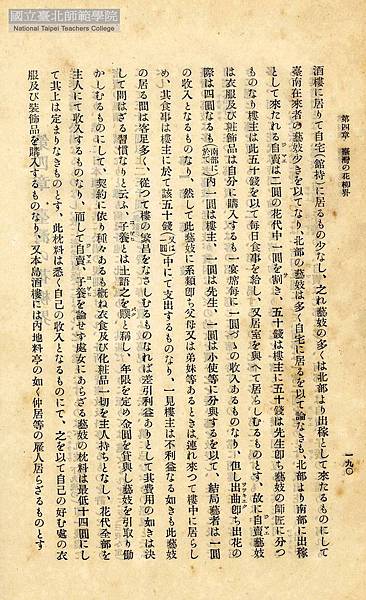 國立臺北師範學院
National Taipei Teachers College
第四章　臺灣の花柳界
一九〇
酒樓に居りて自宅(館持)に居るもの少なし、之れ藝妓の多くは北部より出稼として來たるものにして
臺南在來者の藝妓少きを以てなり、北部の藝妓は多く自宅に居るを以て論なきも、北部より南部に出稼
として來たれる自賣は二圓の花代中一圓を割き、五十錢は樓主に五十錢は先生卽ち藝妓の師匠に分つ
ものなり樓主は此五十錢を以て每日食事を給し、又居室を與へて居らしむるものとす、故に自賣藝妓
は衣服及び粧飾品は自分に購入するも一宴席每に一圓づゝの收入あるものなり、但し出曲卽ち出花の
際は四圓なるも(南部に於て)內一圓は樓主、一圓は先生、一圓は小使等に分與するを以て、結局藝者は一圓
の收入となるものなり、然して此藝妓に系類卽ち父母又は弟妹等あるときは連れ來つて樓中に居らし
め、其食事は樓主に於て該五十錢(又は一圓)中にて支出するものなり、一見樓主は不利益なる如きも此藝妓
の居る間は客足多く、從つて樓の繁昌をなさしむるものなれば差引利益ありとして其費用の如きは決
して問はざる習慣なりと云ふ 子養とは土語之を賤と稱し、年限を定め金圓を貸與し藝妓を引取り働
かしむるものにして、契約に依り種々あるも槪ね衣食及び化粧品一切を主人持ちとなし、花代全部を
主人にて收入するものなり、而して自賣、子養を論せず處女にあらざる藝妓の枕料は最低十四圓にし
て其上は定まりなきものとす、此枕料は悉く自己の收入となるものにて、之を以て自己の好む處の衣
服及び裝飾品を購入するものなり、又本島酒樓には內地料亭の如く仲居等の雇人居らざるものとす